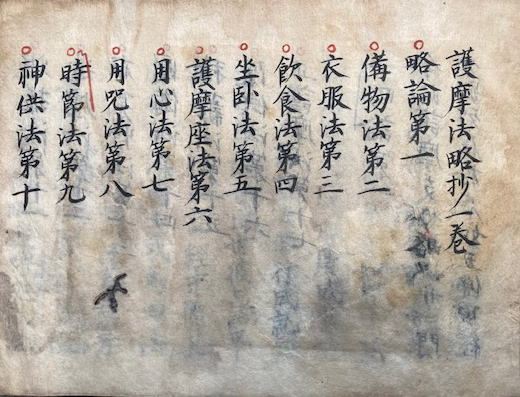 護摩法略抄一巻
略論第一
備物法第二
衣服法第三
飲食法第四
坐卧法第五
護摩座法第六
用心法第七
用咒法第八
時節法第九
神供法第十